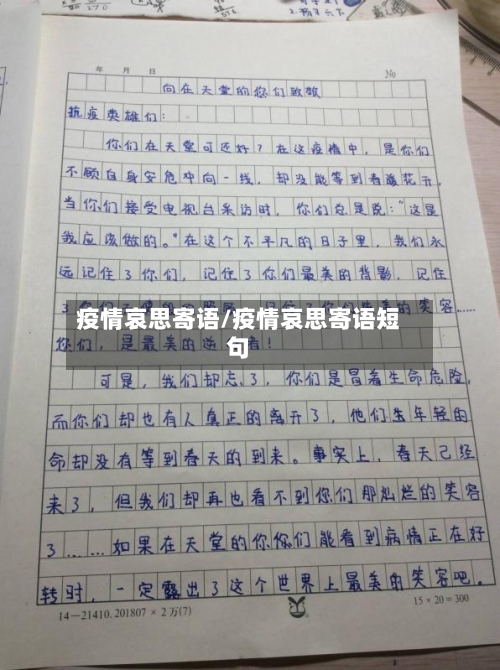 年 月 日
No
向在天堂的您们致敬
抗疫英雄们：
你们在天堂可还好？在这疫情中，是你们
不顾自身安危冲向一线，却没能等到春暖花开，
当你们接受电视台采访时，你们总是说：“这是
我应该做的。”在这个不平凡的日子里，我们永
远记住了你们，记住了你们最美的背影，记住
疫情哀思寄语/疫情哀思寄语短
句
您们，是最美的逆 者！
可是，我们却忘了，你们是冒着生命危险，
而你们却也有人真正的离开了，他们生年轻的
命却没有等到春天的到来。事实上，春天已经
来了，但我们却再也看不到你们那灿烂的笑容
了……如果在天堂的你你们能看到病情正在好
转时，一定露出了这个世界上最美的笑容吧。
14—21410.201807×2万(7)
15×20=300